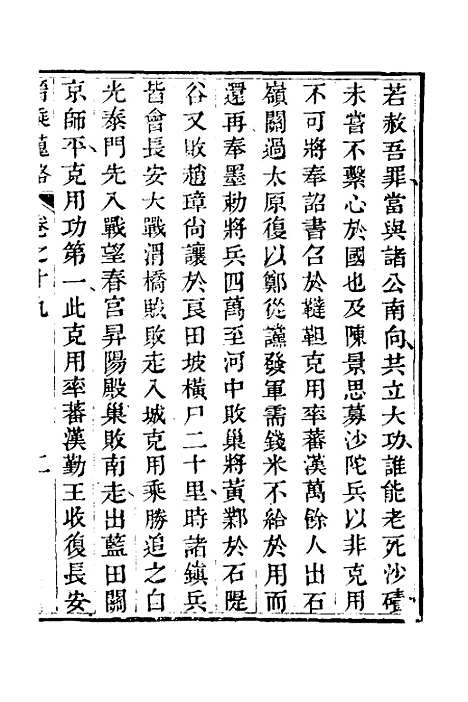 若赦吾罪當與諸公南向共立大功誰能老死沙磧
未嘗不繫心於國也及陳景思募沙陀兵以非克用
不可將奉詔書召於韃靼克用率蕃漢萬餘人出石
嶺關過太原復以鄭從讜發軍需錢米不給於用而
還再奉墨勅將兵四萬至河中敗巢將黃鄴於石隄
谷又敗趙璋尚讓於良田坡橫尸二十里時諸鎮兵
皆會長安大戰渭橋賊敗走入城克用乘勝追之自
光泰門先入戰望春宮昇陽殿巢敗南走出藍田關
京師平克用功第一此克用率蕃漢勤王收復長安
晉乘蒐略 卷之十九 二